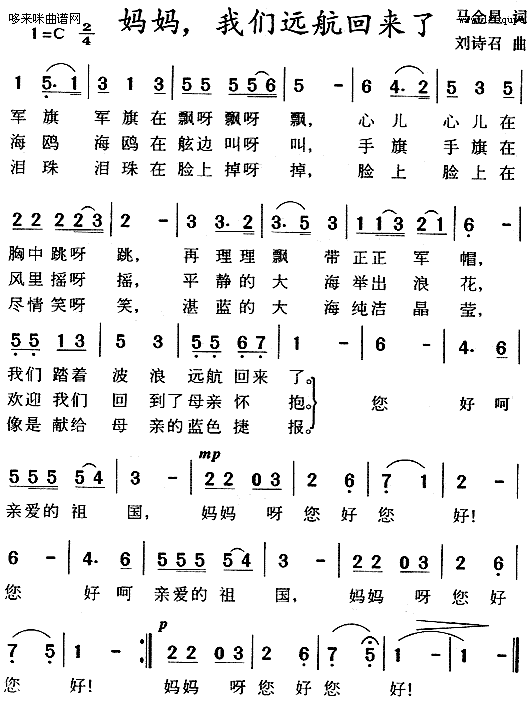 哆来咪曲谱网
1=C 2/4
妈妈，我们远航回来了
马金星 词
刘诗召 曲
1 5· 1 | 3 1 3 | 5 5 5 5 6 | 5 - | 6 4· 2 | 5 3 5 |
军 旗 军 旗 在 飘呀 飘呀 飘， 心 儿 心 儿 在
海 鸥 海 鸥 在 舷边 叫呀 叫， 手 旗 手 旗 在
泪 珠 泪 珠 在 脸上 掉呀 掉， 脸 上 脸 上 在
2 2 2 2 3 | 2 - | 3 3· 2 | 3· 5 | 1 1 3 2 1 | 6 - |
胸中 跳呀 跳， 再 理理 飘 带 正正 军 帽，
风里 摇呀 摇， 平 静的 大 海 举出 浪 花，
尽情 笑呀 笑， 湛 蓝的 大 海 纯洁 晶 莹，
5 5 1 3 | 5 3 | 5 5 6 7 | 1 - | 6 - | 4· 6 |
我们 踏着 波 浪 远航 回来 了。
欢迎 我们 回 到了 母亲 怀 抱。 您 好 呵
像是 献给 母 亲的 蓝色 捷 报。
5 5 5 5 4 | 3 - | mp 2 2 0 3 | 2 6 | 7 1 | 2 - |
亲爱的 祖 国， 妈妈 呀 您 好 您 好！
6 - | 4· 6 | 5 5 5 5 4 | 3 - | 2 2 0 3 | 2 6 |
您 好 呵 亲爱的 祖 国， 妈妈 呀 您 好
7 5 | 1 - :| p 2 2 0 3 | 2 6 | 7 5 | 1 - | 1 - |
您 好！ 妈妈 呀 您 好 您 好！